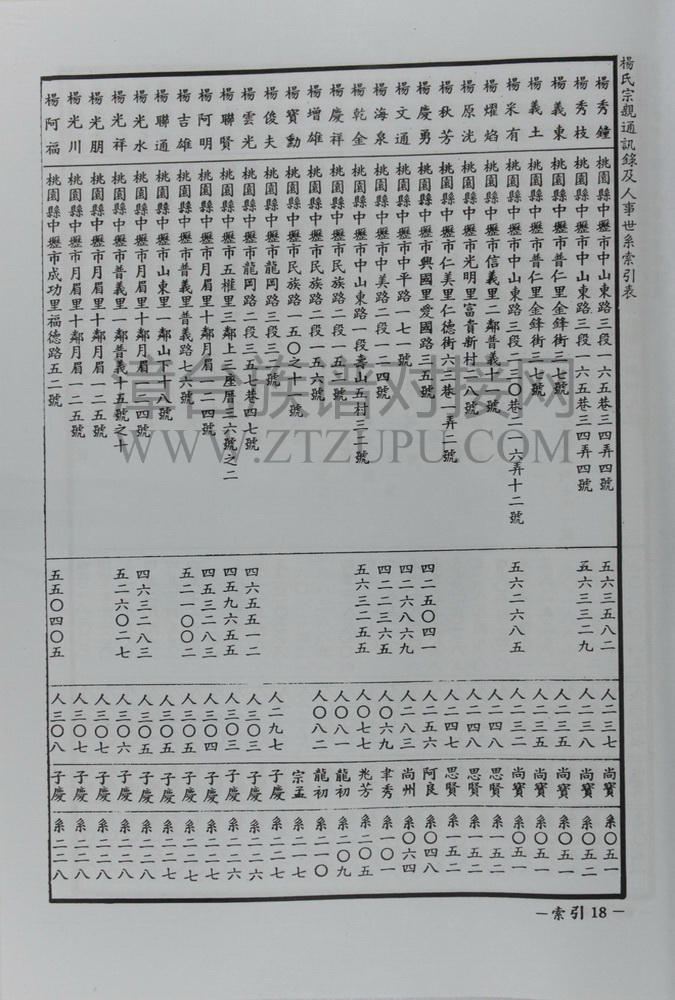 楊氏宗親通訊錄及人事世系索引表
楊秀鐘 桃園縣中壢市中山東路三段一六五巷三四弄四號 五六三五八二 人二三七 尚寶 系〇五一
楊秀枝 桃園縣中壢市中山東路三段一六五巷三四弄四號 五六三三二九 人二三八 尚寶 系〇五二
楊義東 桃園縣中壢市普仁里金鋒街三七號 人二三五 尚寶 系〇五一
楊義土 桃園縣中壢市普仁里金鋒街三七號 人二三五 尚寶 系〇五一
楊采有 桃園縣中壢市中山東路三段一三〇巷二一六弄十二號 五六二六八五 人二三二 尚寶 系〇五一
楊燿焰 桃園縣中壢市信義里二鄰普義十一號 人二四八 思賢 系一五二
楊原洸 桃園縣中壢市光明里富貴新村二八號 人二四八 思賢 系一五二
楊秋芳 桃園縣中壢市仁美里仁德街六三巷一弄二號 人二四七 思賢 系一五二
楊慶勇 桃園縣中壢市興國里愛國路三五號 四二五〇四一 人二五六 阿良 系〇四八
楊文通 桃園縣中壢市中平路一七一號 四二六八六九 人二八三 尚州 系〇六四
楊海泉 桃園縣中壢市中美路二段一二四號 四二二三六五 人〇六九 聿秀 系一〇一
楊乾金 桃園縣中壢市中山東路一段壽山五村三一號 五六三二五五 人〇七七 兆芳 系二〇五
楊慶祥 桃園縣中壢市民族路二段一五六號 人〇八一 龍初 系二〇九
楊增雄 桃園縣中壢市民族路二段一五六號 人〇八二 龍初 系二一〇
楊寶勳 桃園縣中壢市民族路一五〇之十一號 宗孟 系一一七
楊俊夫 桃園縣中壢市龍岡路三段三號 人二九七 子慶 系二二七
楊雲光 桃園縣中壢市龍岡路二段三五七巷四七號 四六五五一二 人三〇三 子慶 系二二六
楊聯賢 桃園縣中壢市五權里三鄰上三座厝三六號之二 四五九六五五 人三〇三 子慶 系二二六
楊阿明 桃園縣中壢市月眉里十鄰月眉一二四號 四五三二八三 人三〇四 子慶 系二二七
楊吉雄 桃園縣中壢市普義里普義路七六號 五二一〇〇二 人三〇五 子慶 系二二七
楊聯通 桃園縣中壢市山東里一鄰山下十八號 人三〇五 子慶 系二二七
楊光水 桃園縣中壢市月眉里十鄰月眉一四號 四六三二八三 人三〇五 子慶 系二二八
楊光祥 桃園縣中壢市普義里一鄰普義十五號之十 五二六〇二七 人三〇六 子慶 系二二八
楊光朋 桃園縣中壢市月眉里十鄰月眉一二五號 人三〇七 子慶 系二二八
楊光川 桃園縣中壢市月眉里十鄰月眉一二五號 人三〇七 子慶 系二二八
楊阿福 桃園縣中壢市成功里福德路五二號 五五〇四〇五 人三〇八 子慶 系二二八
—索引18—
章台族谱对接网
WWW.ZTZUPU.COM